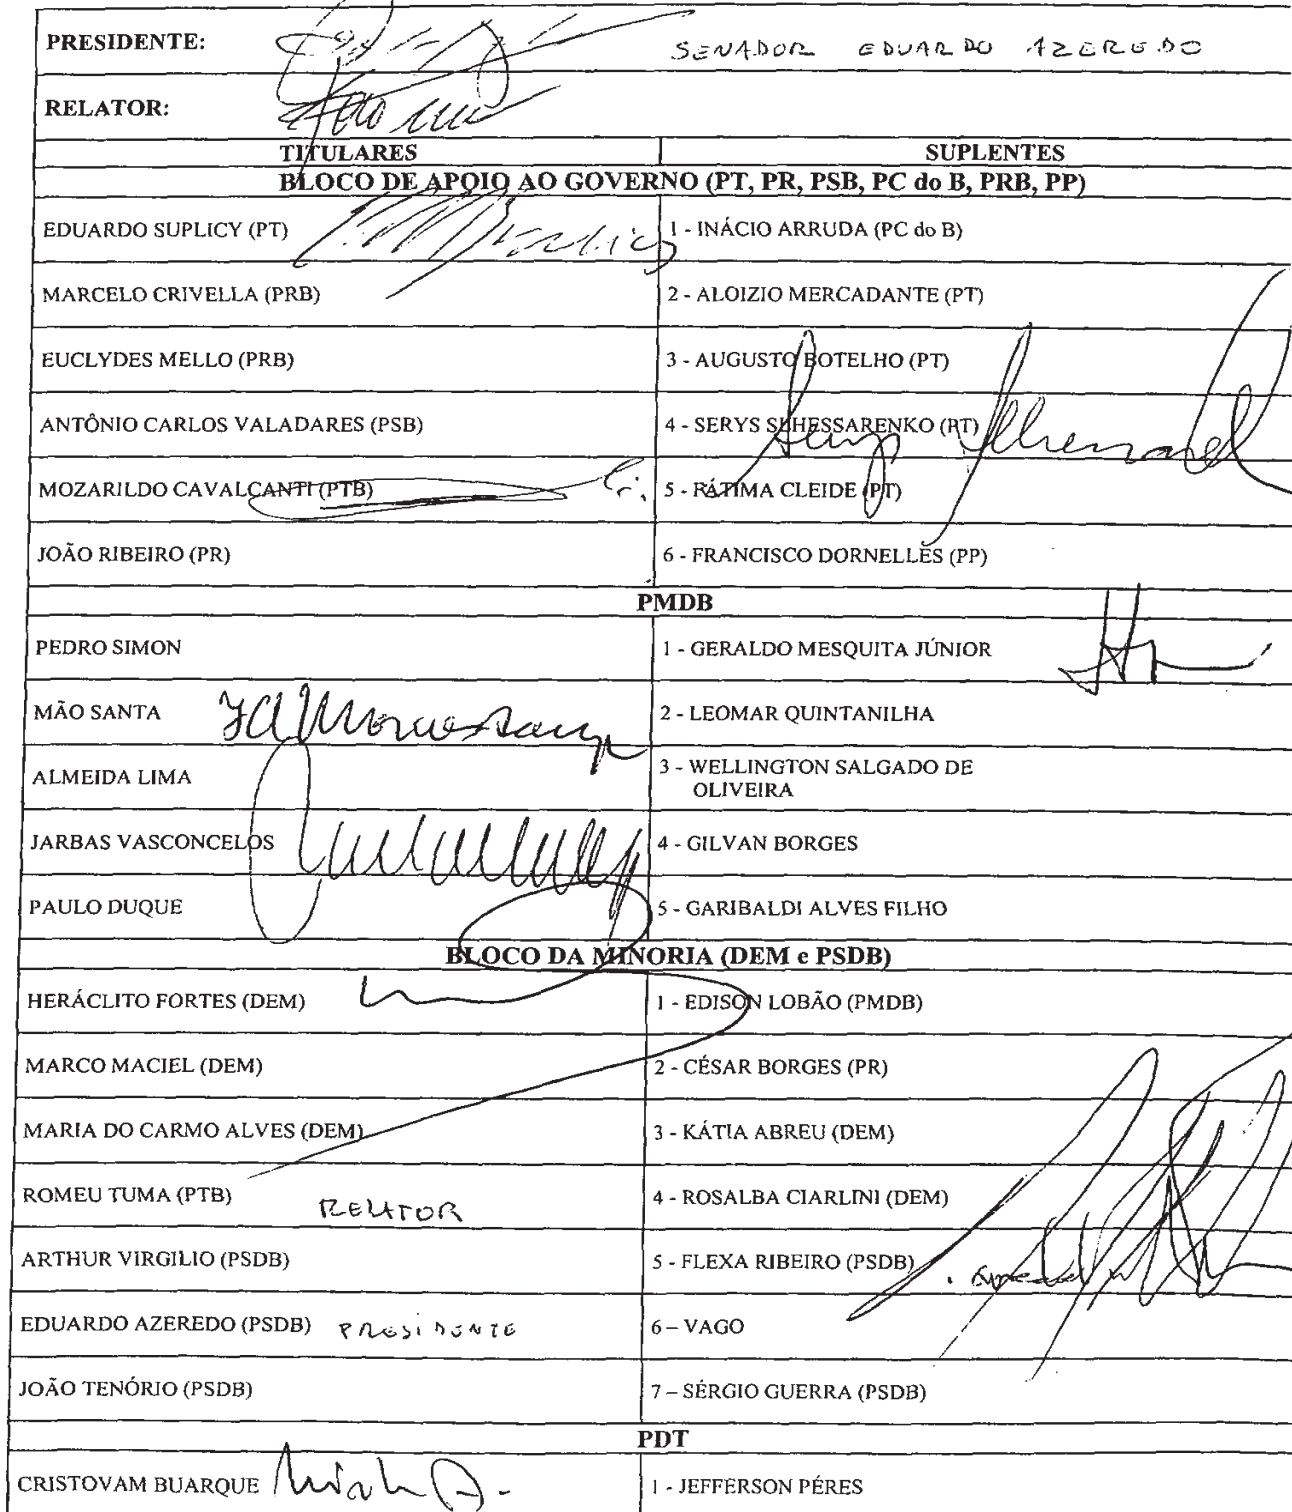 PRESIDENTE: SENADOR EDUARDO AZEREDO
RELATOR:
TITULARES SUPLENTES
BLOCO DE APOIO AO GOVERNO (PT, PR, PSB, PC do B, PRB, PP)
EDUARDO SUPLICY (PT) 1 - INÁCIO ARRUDA (PC do B)
MARCELO CRIVELLA (PRB) 2 - ALOIZIO MERCADANTE (PT)
EUCLYDES MELLO (PRB) 3 - AUGUSTO BOTELHO (PT)
ANTÔNIO CARLOS VALADARES (PSB) 4 - SERYS SLHESSARENKO (PT)
MOZARILDO CAVALCANTI (PTB) 5 - FÁTIMA CLEIDE (PT)
JOÃO RIBEIRO (PR) 6 - FRANCISCO DORNELLES (PP)
PMDB
PEDRO SIMON 1 - GERALDO MESQUITA JÚNIOR
MÃO SANTA 2 - LEOMAR QUINTANILHA
ALMEIDA LIMA 3 - WELLINGTON SALGADO DE
OLIVEIRA
JARBAS VASCONCELOS 4 - GILVAN BORGES
PAULO DUQUE 5 - GARIBALDI ALVES FILHO
BLOCO DA MINORIA (DEM e PSDB)
HERÁCLITO FORTES (DEM) 1 - EDISON LOBÃO (PMDB)
MARCO MACIEL (DEM) 2 - CÉSAR BORGES (PR)
MARIA DO CARMO ALVES (DEM) 3 - KÁTIA ABREU (DEM)
ROMEU TUMA (PTB) RELATOR 4 - ROSALBA CIARLINI (DEM)
ARTHUR VIRGÍLIO (PSDB) 5 - FLEXA RIBEIRO (PSDB)
EDUARDO AZEREDO (PSDB) PRESIDENTE 6 – VAGO
JOÃO TENÓRIO (PSDB) 7 – SÉRGIO GUERRA (PSDB)
PDT
CRISTOVAM BUARQUE 1 - JEFFERSON PÉRES